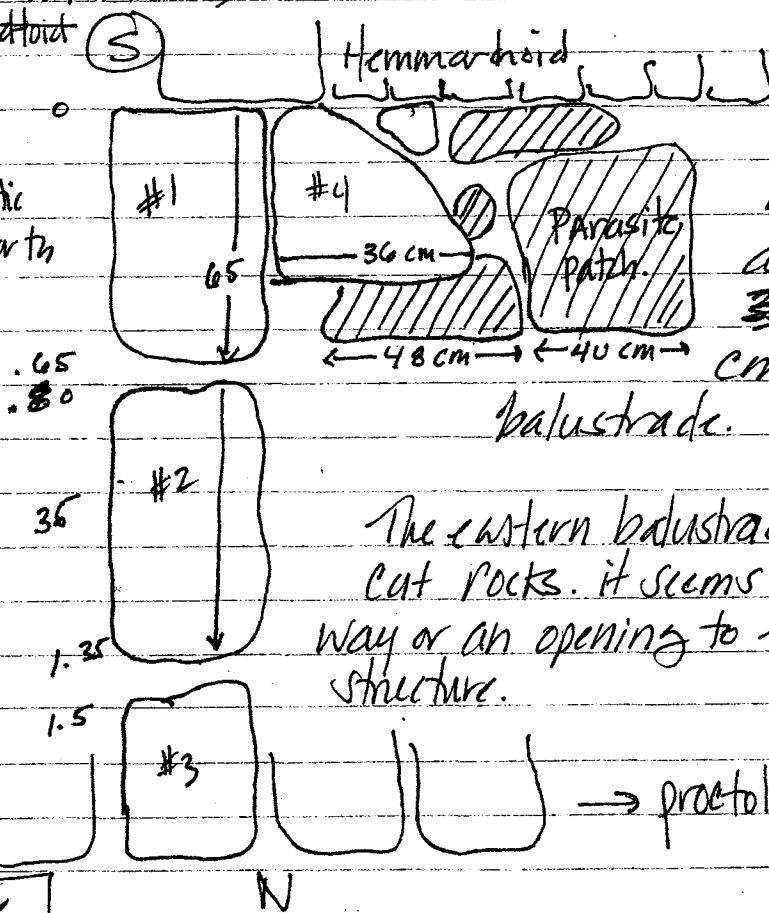 S
Hemmorhoid
0
#1
#4
65
36 cm
Parasite
patch.
.65
.80
48 cm
40 cm
cm
balustrade.
#2
35
The eastern balustra
cut rocks. it seems
way or an opening to
structure.
1.35
1.5
#3
→ proctol
N